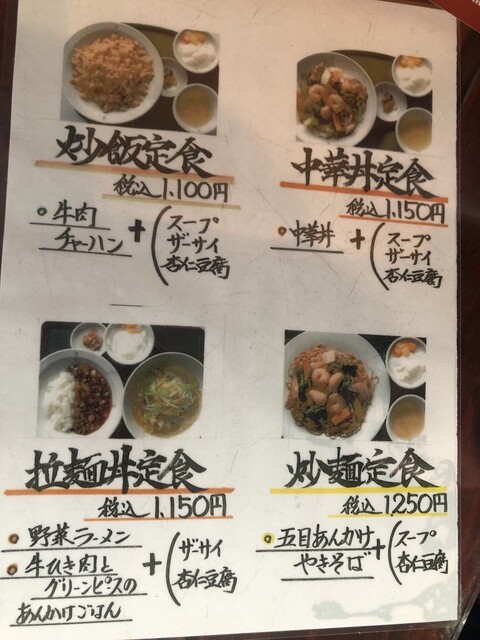 炒飯定食
税込 1.100円
牛肉
チャーハン
+
スープ
ザーサイ
杏仁豆腐
中華丼定食
税込 1.150円
中華丼
+
スープ
ザーサイ
杏仁豆腐
拉麺丼定食
税込 1.150円
野菜ラーメン
牛ひき肉と
グリーンピースの
あんかけごはん
+
ザーサイ
杏仁豆腐
炒麺定食
税込 1250円
五目あんかけ
やきそば
+
スープ
杏仁豆腐